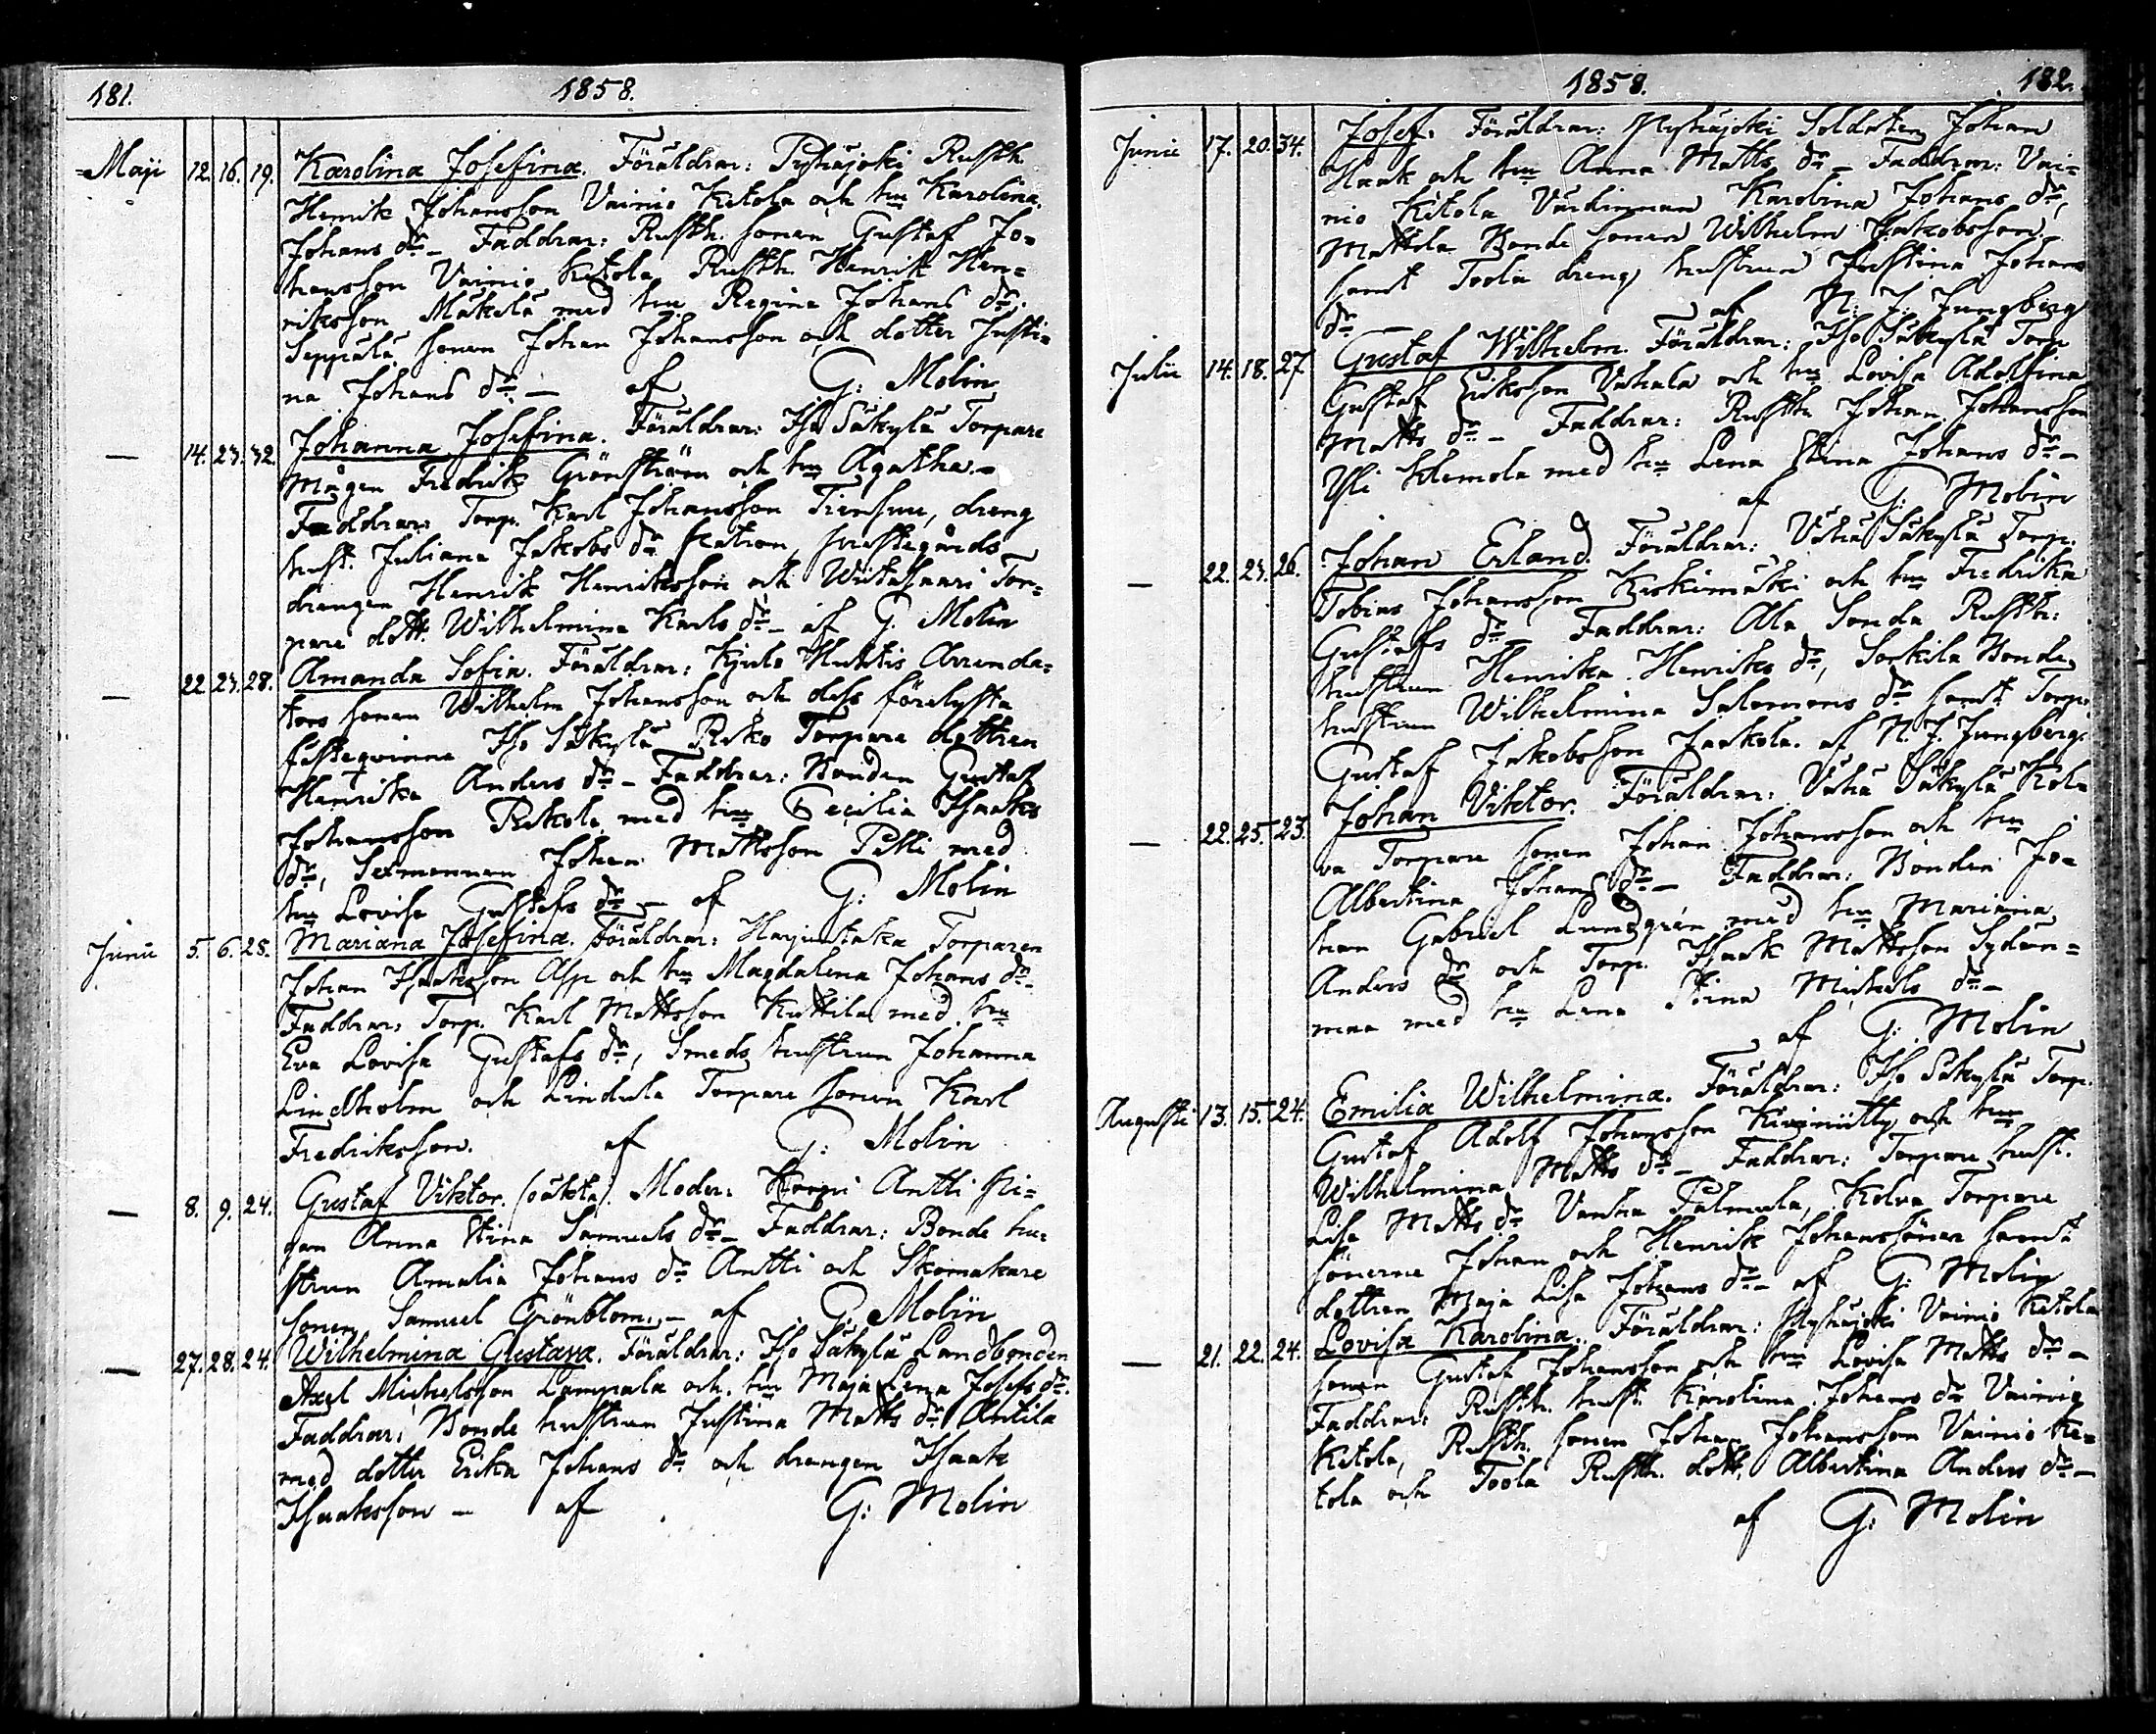 181. 1858.
Maji 12. 16. 19. Karolina Josefina. Föräldrar: Pyhäjoki Rusth.
Henrik Johansson Vainio Ketola och hu Karolina
Johans dr – Faddrar: Rusth. sonen Gustaf Jo-
hansson Vainio Ketola, Rusth. Henrik Hen-
riksson Mäkelä med hu Regina Johans dr.
Seppälä sonen Johan Johansson och dotter Justi-
na Johans dr – af G: Molin
— 14. 23. 32. Johanna Josefina. Föräldrar: Iso Säkylä Torpare
Mågen Fredrik Grönström och hu Agatha –
Faddrar: Torp. Karl Johansson Tiensuu, dreng
hust. Juliana Jakobs dr, prestegårds
drängen Henrik Henriksson och Wiitasaari Tor-
pare dott. Wilhelmina Karls dr – af G. Molin
— 22. 23. 28. Amanda Sofia. Föräldrar: Kjulo Huhtis Arrenda-
tors sonen Wilhelm Johansson och dess förelofta
fästeqvinna Iso Säkylä Torpare dottren
Henrika Anders dr – Faddrar: Bonden Gustaf
Johansson med hu Cecilia Isaaks
dr, Sexmannen Johan Mattsson Pitti med
hu Lovisa Gustafs dr – af G: Molin
Junii 5. 6. 25. Mariana Josefina. Föräldrar: Harjustaka Torparen
Johan Isaaksson Alp och hu Magdalena Johans dr –
Faddrar: Torp. Karl Mattsson Kuttila med hu
Eva Lovisa Gustafs dr, Smeds hustrun Johanna
Lindholm och Lindula Torpare sonen Karl
Fredriksson. af G: Molin
— 8. 9. 24. Gustaf Viktor. (oäkta). Moder: Korpi Antti Pi-
gan Anna Stina Samuels dr – Faddrar: Bonde hu-
strun Amalia Johans dr Antti och Skomakare
sonen Samuel Grönblom – af G: Molin
— 27. 28. 24. Wilhelmina Gustava. Föräldrar: Iso Säkylä Landbonden
Axel Michelsson Lampala och hu Maja Lena Josefs dr.
Faddrar: Bonde hustrun Justina Matts dr Antila
med dotter Erika Johans dr och drengen Isaak
Isaaksson – af G: Molin
1858. 182.
Junii 17. 20. 34. Josef. Föräldrar: Pyhäjoki Soldaten Johan
Haak och hu Anna Matts dr – Faddrar: Vai-
nio Ketola Värdinnan Karolina Johans dr,
Mattila Bonde sonen Wilhelm Jakobsson
samt Toola dreng hustrun Justina Johans
dr – af N: J. Jungberg
Julii 14. 18. 27 Gustaf Wilhelm. Föräldrar: Iso Säkylä Torp
Gustaf Eriksson Uahala och hu Lovisa Adolfina
Matts dr – Faddrar: Rusth. Johan Johansson
Yli Klemola med hu Lena Stina Johans dr –
af G: Molin
— 22. 23. 26. Johan Erland. Föräldrar: Vähä Säkylä Torp.
Tobias Johansson Keskimäki och hu Fredrika
Gustafs dr – Faddrar: Ala Sonda Rusth.
hustrun Henrika Henriks dr, Sorkila Bonde
hustrun Wilhelmina Salomons dr samt Torp.
Gustaf Jakobsson Jaskola. af N. J. Jungberg.
— 22. 25. 23. Johan Viktor. Föräldrar: Vähä Säkylä Kol-
va Torpare sonen Johan Johansson och hu
Albertina Johans dr – Faddrar: Bonden Jo-
han Gabriel Lundgrén med hu Marianna
Anders dr och Torp. Isaak Mattsson Sydän-
maa med hu Lena Stina Michels dr –
af G. Molin
Augusti 13. 15. 24. Emilia Wilhelmina. Föräldrar: Iso Säkylä Torp.
Gustaf Adolf Johansson Kivimitty och hu
Wilhelmina Matts dr – Faddrar: Torpare hust.
Lisa Matts dr Vanha Talmula, Kolva Torpare
sönerne Johan och Henrik Johanssöner samt
dottren Maja Lisa Johans dr – af G: Molin
— 21. 22. 24. Lovisa Karolina. Föräldrar: Pyhäjoki Vainio Ketola
sonen Gustaf Johansson och hu Lovisa Matts dr –
Faddrar: Rusth. hust. Karolina Johans dr Vainio
Ketola, Rusth. sonen Johan Johansson Vainio Ke-
tola och Toola Rusth. dott. Albertina Anders dr –
af G: Molin